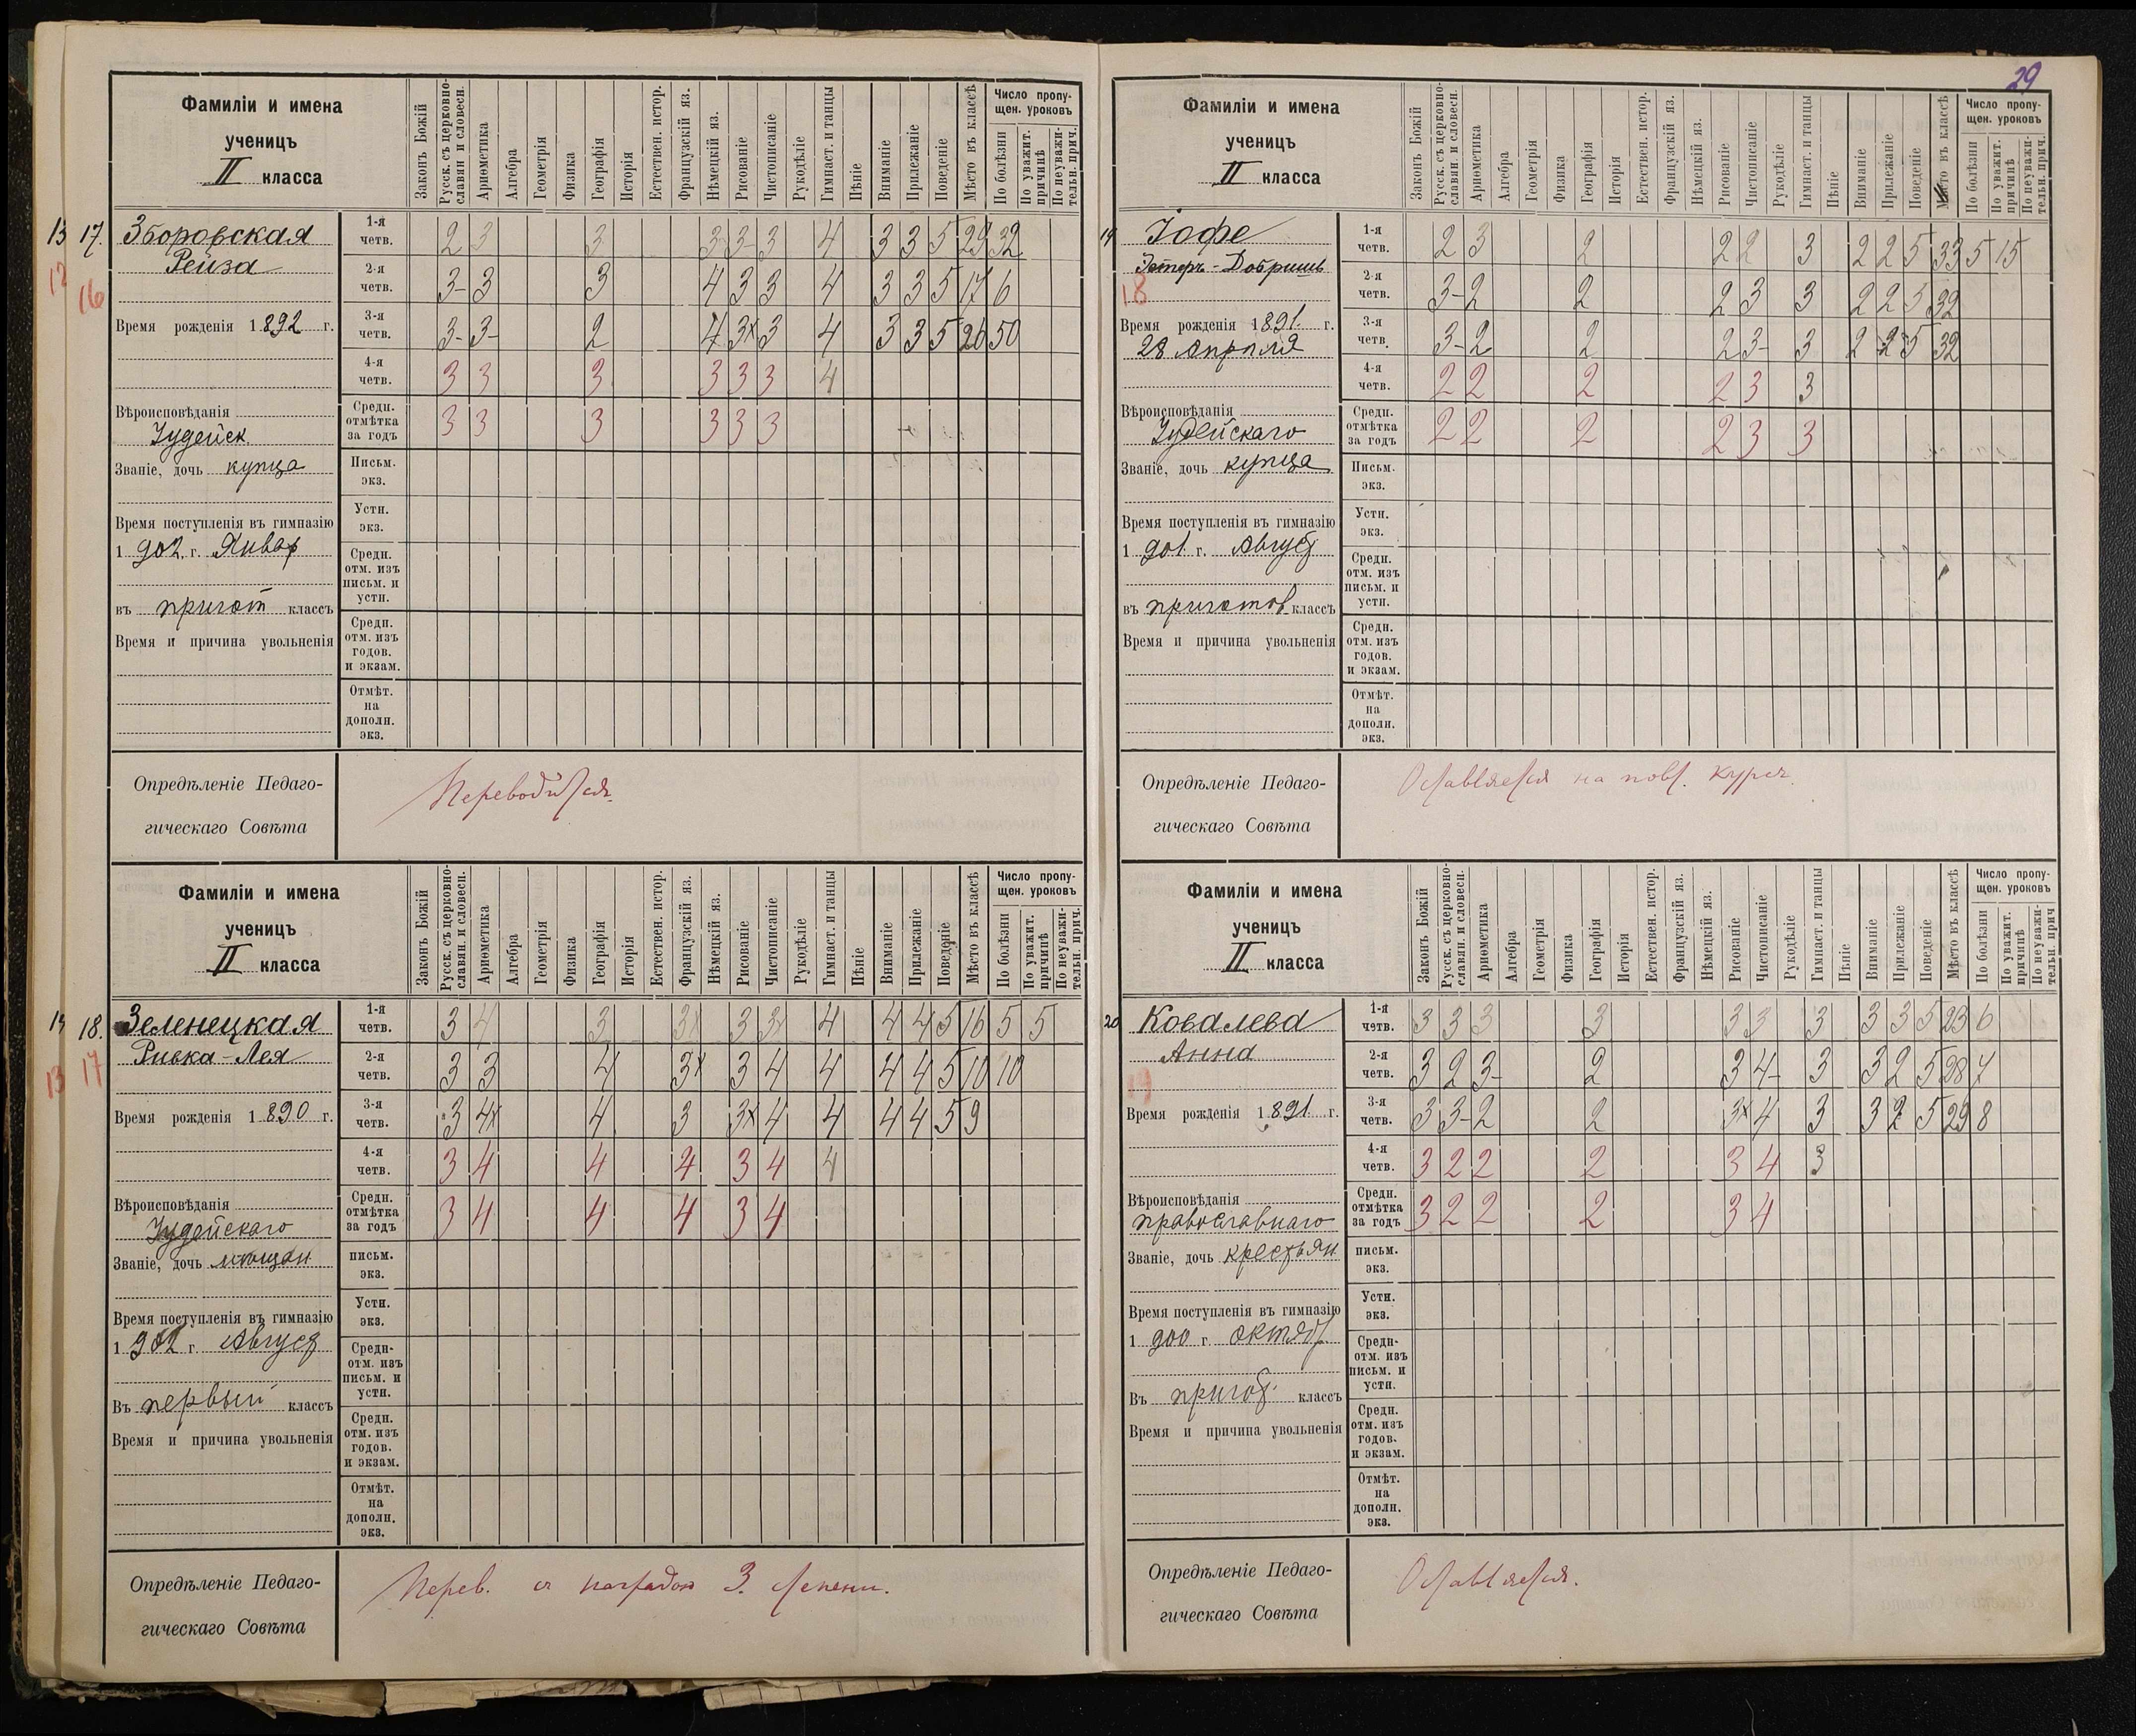 29
Фамиліи и имена
ученицъ
II класса
Законъ Божій
Русск. съ церковно-
славян. и словесн.
Ариѳметика
Алгебра
Геометрія
Физика
Географія
Исторія
Естествен. истор.
Французскій яз.
Нѣмецкій яз.
Рисованіе
Чистописаніе
Рукодѣліе
Гимнаст. и танцы
Пѣніе
Вниманіе
Прилежаніе
Поведеніе
Мѣсто въ классѣ
Число пропу-
щен. уроковъ
По болѣзни
По уважит.
причинѣ
По неуважи-
тельн. прич.
13 17. Зборовская
Рейза
12 16
Время рожденія 1892 г.
Вѣроисповѣданія
Іудейск
Званіе, дочь купца
Время поступленія въ гимназію
1902 г. Январ
въ пригот классъ
Время и причина увольненія
1-я четв. 2 3 3 3 3- 3 4 3 3 5 29 32
2-я четв. 3- 3 3 4 3 3 4 3 3 5 17 6
3-я четв. 3- 3- 2 4 3x 3 4 3 3 5 26 50
4-я четв. 3 3 3 3 3 3 4
Средн. отмѣтка за годъ 3 3 3 3 3 3
Письм. экз.
Устн. экз.
Средн. отм. изъ письм. и устн.
Средн. отм. изъ годов. и экзам.
Отмѣт. на дополн. экз.
Опредѣленіе Педаго-
гическаго Совѣта
Переводится.
Фамиліи и имена
ученицъ
II класса
Законъ Божій
Русск. съ церковно-
славян. и словесн.
Ариѳметика
Алгебра
Геометрія
Физика
Географія
Исторія
Естествен. истор.
Французскій яз.
Нѣмецкій яз.
Рисованіе
Чистописаніе
Рукодѣліе
Гимнаст. и танцы
Пѣніе
Вниманіе
Прилежаніе
Поведеніе
Мѣсто въ классѣ
Число пропу-
щен. уроковъ
По болѣзни
По уважит.
причинѣ
По неуважи-
тельн. прич.
14 18. Зеленецкая
Ривка-Лея
13 17
Время рожденія 1890 г.
Вѣроисповѣданія
Іудейскаго
Званіе, дочь мѣщан
Время поступленія въ гимназію
1902 г. Август
Въ первый классъ
Время и причина увольненія
1-я четв. 3 4 3 3x 3 3x 4 4 4 5 16 5 5
2-я четв. 3 3 4 3x 3 4 4 4 4 5 10 10
3-я четв. 3 4x 4 3 3x 4 4 4 4 5 9
4-я четв. 3 4 4 4 3 4 4
Средн. отмѣтка за годъ 3 4 4 4 3 4
письм. экз.
Устн. экз.
Средн- отм. изъ письм. и устн.
Средн. отм. изъ годов. и экзам.
Отмѣт. на дополн. экз.
Опредѣленіе Педаго-
гическаго Совѣта
Перев. съ наградою 3. степени.
Фамиліи и имена
ученицъ
II класса
Законъ Божій
Русск. съ церковно-
славян. и словесн.
Ариѳметика
Алгебра
Геометрія
Физика
Географія
Исторія
Естествен. истор.
Французскій яз.
Нѣмецкій яз.
Рисованіе
Чистописаніе
Рукодѣліе
Гимнаст. и танцы
Пѣніе
Вниманіе
Прилежаніе
Поведеніе
Мѣсто въ классѣ
Число пропу-
щен. уроковъ
По болѣзни
По уважит.
причинѣ
По неуважи-
тельн. прич.
19 Іофе
Эстеръ-Добришъ
18
Время рожденія 1891. г.
28 Апрѣля
Вѣроисповѣданія
Іудейскаго
Званіе, дочь купца
Время поступленія въ гимназію
1901 г. Август
въ приготов классъ
Время и причина увольненія
1-я четв. 2 3 2 2 2 3 2 2 5 33 5 15
2-я четв. 3- 2 2 2 3 3 2 2 5 32
3-я четв. 3- 2 2 2 3- 3 2 2 5 32
4-я четв. 2 2 2 2 3 3
Средн. отмѣтка за годъ 2 2 2 2 3 3
Письм. экз.
Устн. экз.
Средн. отм. изъ письм. и устн.
Средн. отм. изъ годов. и экзам.
Отмѣт. на дополн. экз.
Опредѣленіе Педаго-
гическаго Совѣта
Оставляется на повт. курсъ.
Фамиліи и имена
ученицъ
II класса
Законъ Божій
Русск. съ церковно-
славян. и словесн.
Ариѳметика
Алгебра
Геометрія
Физика
Географія
Исторія
Естествен. истор.
Французскій яз.
Нѣмецкій яз.
Рисованіе
Чистописаніе
Рукодѣліе
Гимнаст. и танцы
Пѣніе
Вниманіе
Прилежаніе
Поведеніе
Мѣсто въ классѣ
Число пропу-
щен. уроковъ
По болѣзни
По уважит.
причинѣ
По неуважи-
тельн. прич
20 Ковалева
Анна
19
Время рожденія 1891 г.
Вѣроисповѣданія
православнаго
Званіе, дочь крестьян
Время поступленія въ гимназію
1900 г. октяб.
Въ пригот. классъ
Время и причина увольненія
1-я четв. 3 3 3 3 3 3 3 3 3 5 23 6
2-я четв. 3 2 3- 2 3 4- 3 3 2 5 28 7
3-я четв. 3 3- 2 2 3x 4 3 3 2 5 29 8
4-я четв. 3 2 2 2 3 4 3
Средн. отмѣтка за годъ 3 2 2 2 3 4
письм. экз.
Устн. экз.
Средн- отм. изъ письм. и устн.
Средн. отм. изъ годов. и экзам.
Отмѣт. на дополн. экз.
Опредѣленіе Педаго-
гическаго Совѣта
Оставляется.